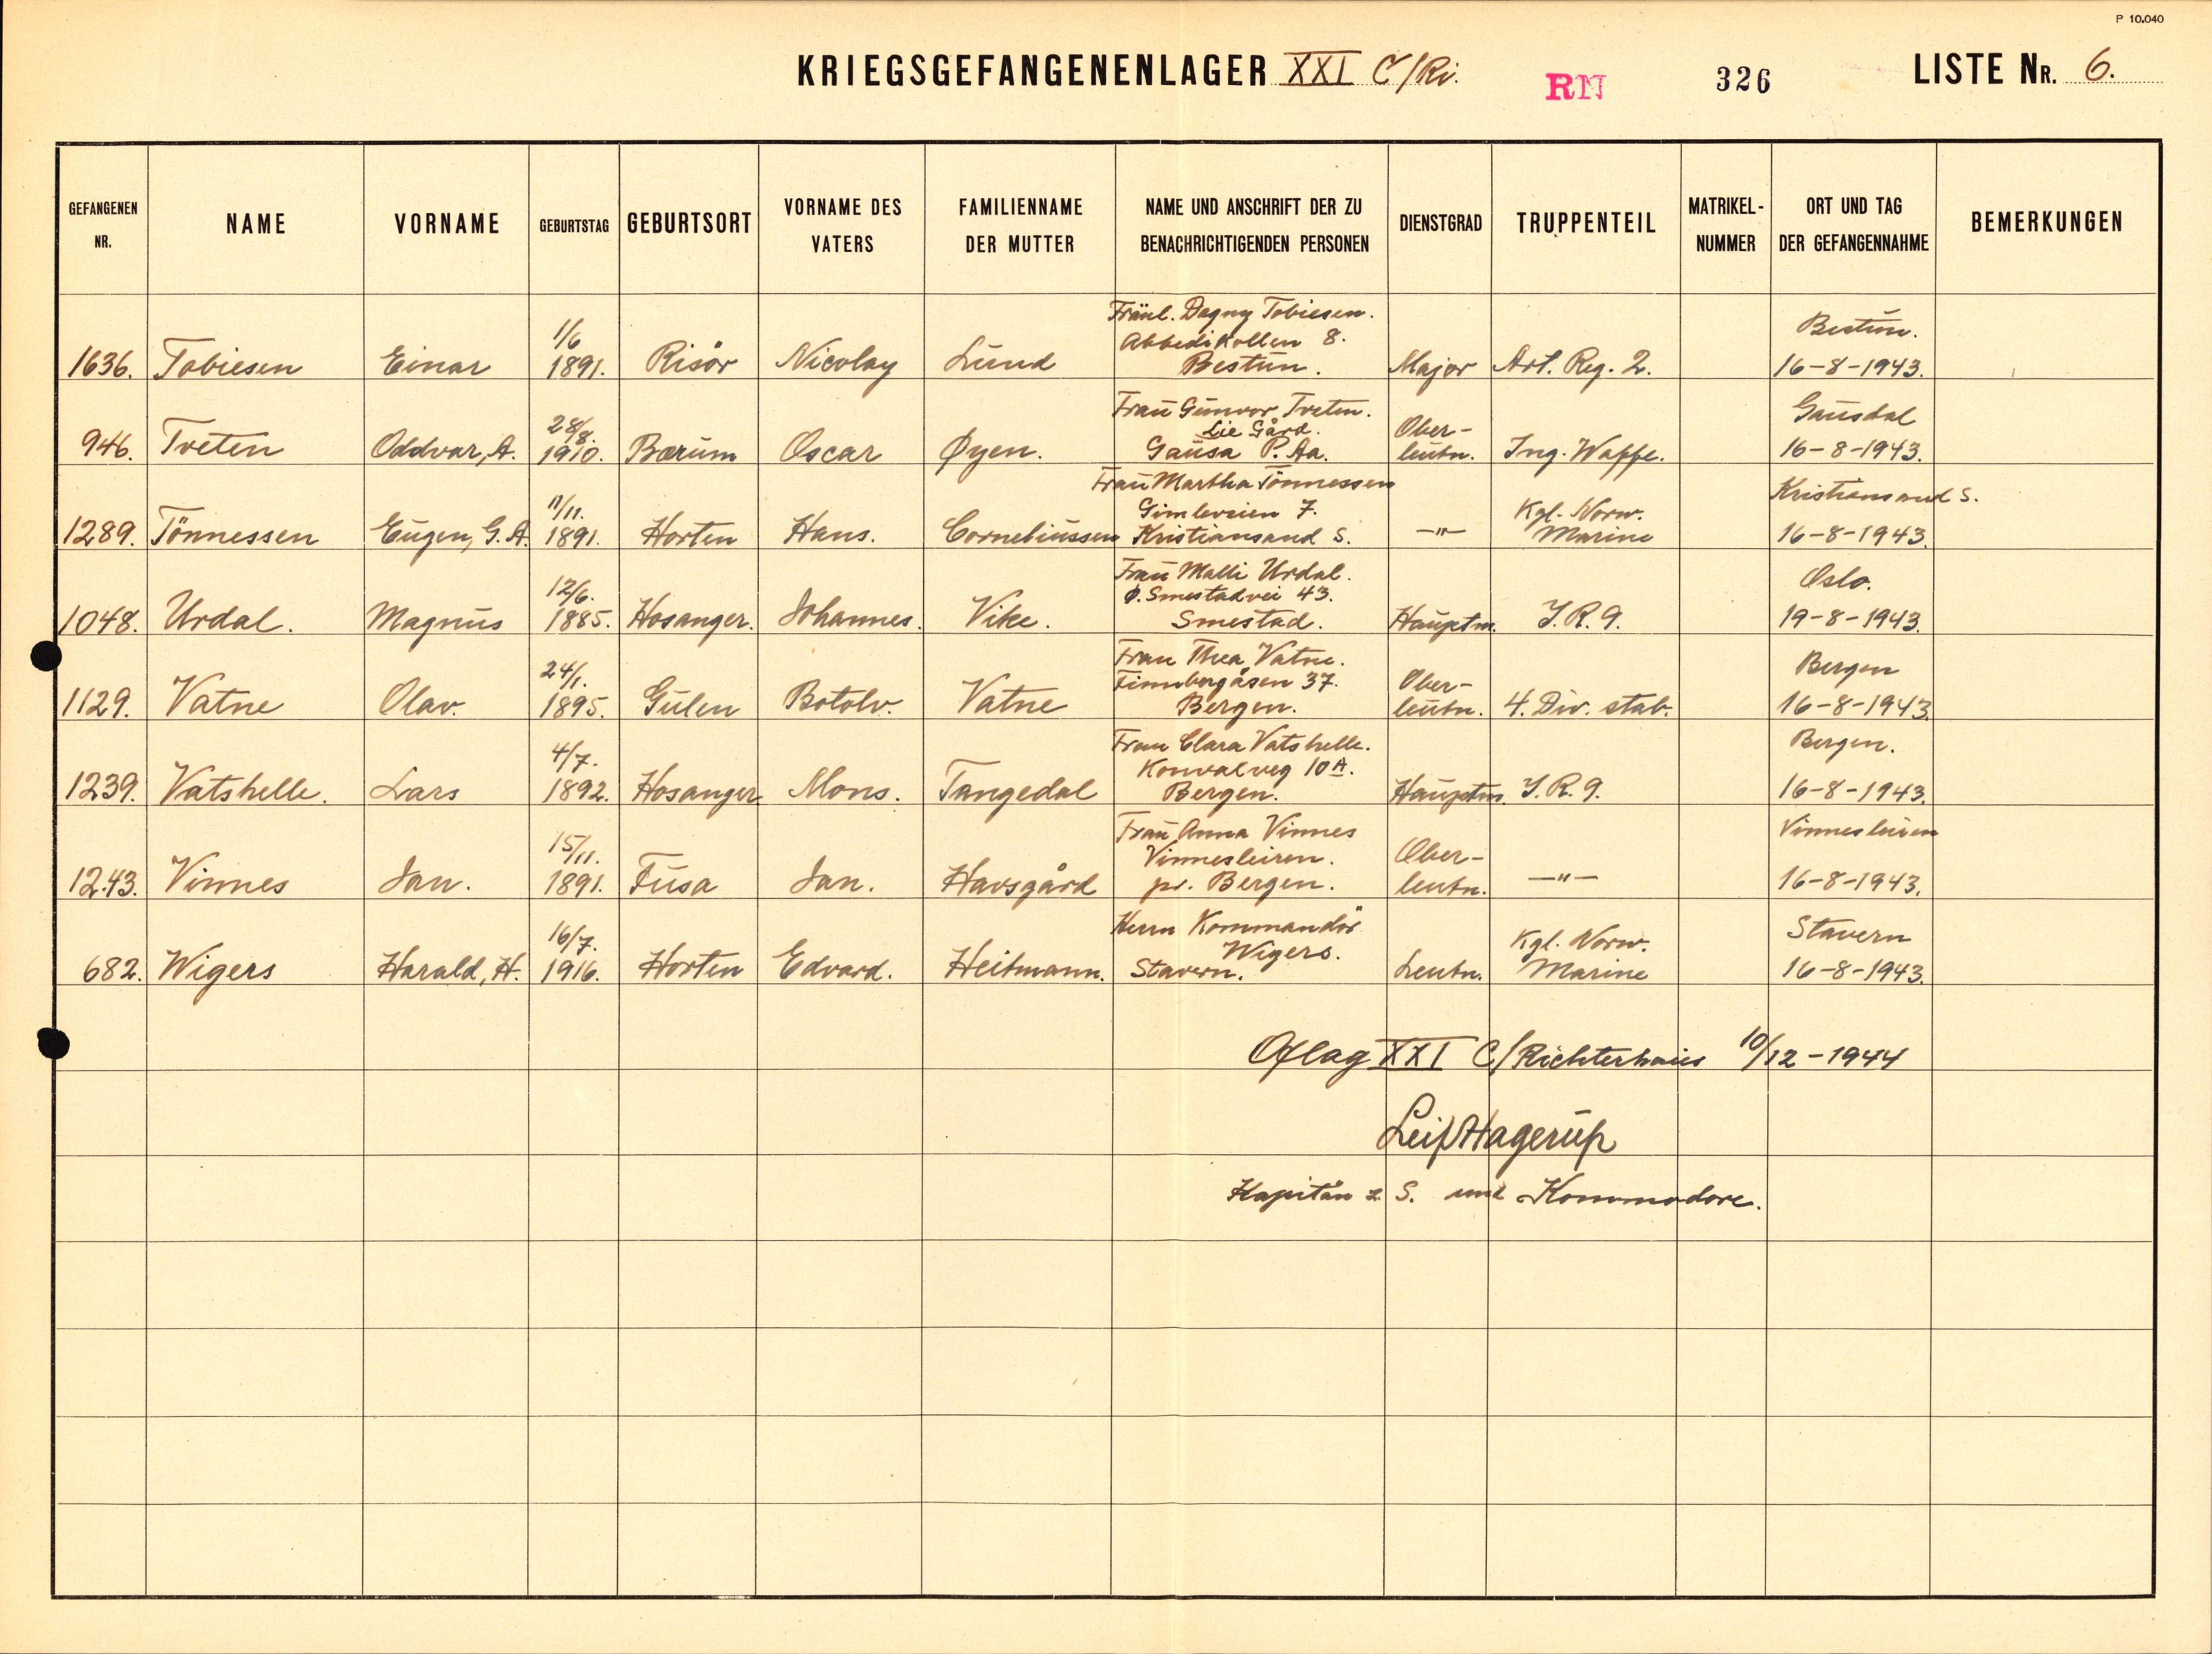 P 10.040
KRIEGSGEFANGENENLAGER XXI C/Ri. RN 326 LISTE NR. 6.
GEFANGENEN NR. NAME VORNAME GEBURTSTAG GEBURTSORT VORNAME DES VATERS FAMILIENNAME DER MUTTER NAME UND ANSCHRIFT DER ZU BENACHRICHTIGENDEN PERSONEN DIENSTGRAD TRUPPENTEIL MATRIKEL-NUMMER ORT UND TAG DER GEFANGENNAHME BEMERKUNGEN
1636. Tobiesen Einar 1/6 1891. Risör Nicolay Lund Fräul. Dagny Tobiesen. Abbedikollen 8. Bestun. Major Art. Reg. 2. Bestun. 16-8-1943.
946. Tveten Oddvar, A. 28/8. 1910. Bærum Oscar Øyen. Frau Gunvor Tveten. Lie Gård. Gausa P. Aa. Ober-leutn. Ing. Waffe. Gausdal 16-8-1943.
1289. Tönnessen Eugen, G. A. 11/11. 1891. Horten Hans. Corneliussen Frau Martha Tönnessen Gimleveien 7. Kristiansand S. -"- Kgl. Norw. Marine Kristiansand S. 16-8-1943.
1048. Urdal. Magnus 12/6. 1885. Hosanger. Johannes. Vike. Frau Malli Urdal. Ø. Smestadvei 43. Smestad. Hauptm. J. R. 9. Oslo. 19-8-1943.
1129. Vatne Olav. 24/1. 1895. Gulen Botolv. Vatne Frau Thea Vatne. Finnbergåsen 37. Bergen. Ober-leutn. 4. Div. stab. Bergen 16-8-1943.
1239. Vatshelle. Lars 4/7. 1892. Hosanger Mons. Tangedal Frau Clara Vatshelle. Konvalveg 10A. Bergen. Hauptm. J. R. 9. Bergen. 16-8-1943.
1243. Vinnes Jan. 15/11. 1891. Fusa Jan. Havsgård Frau Anna Vinnes Vinnesleiren. pr. Bergen. Ober-leutn. -"- Vinnesleiren 16-8-1943.
682. Wigers Harald, H. 16/7. 1916. Horten Edvard. Heitmann. Herrn Kommandör Wigers. Stavern. Leutn. Kgl. Norw. Marine Stavern 16-8-1943.
Oflag XXI C/Richterhaus 10/12-1944
Leif Hagerup
Kapitän z. S. und Kommodore.